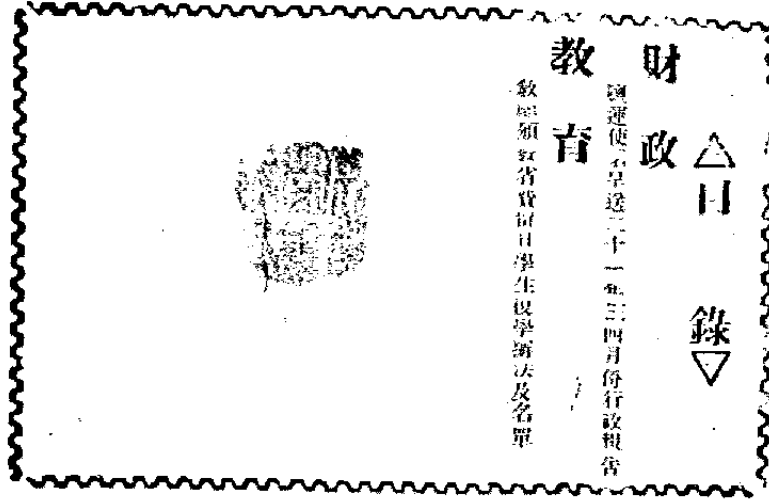 △目錄▽
財政
運使署呈送二十一年三四月份行政報告
教育
教廳頒發省費留日學生復學辦法及名單